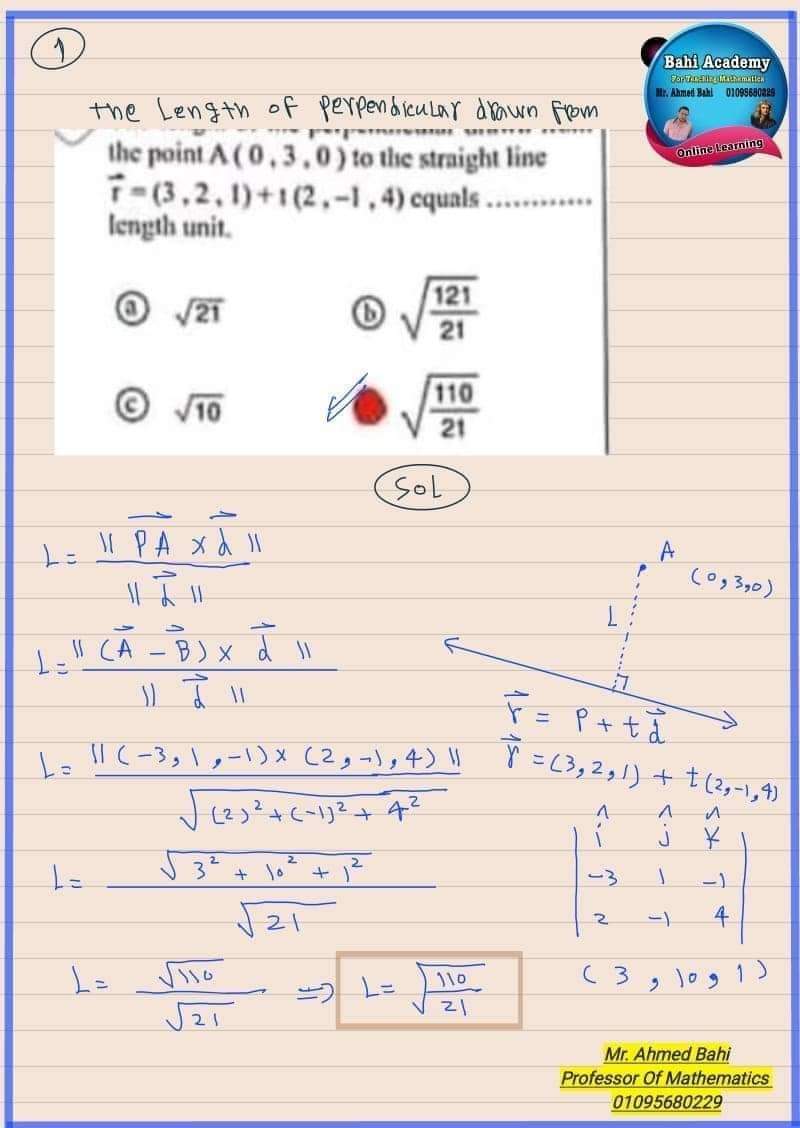 1
Bahi Academy
For Teaching Mathematics
Mr. Ahmed Bahi 01095680229
Online Learning
the Length of perpendicular drawn from
the point A ( 0 , 3 , 0 ) to the straight line
r⃗ = (3 , 2 , 1) + t (2 , −1 , 4) equals ............
length unit.
ⓐ √21 ⓑ √(121/21)
ⓒ √10 √(110/21)
SOL
L = ‖ PA⃗ × d⃗ ‖ / ‖ d⃗ ‖
A
(0,3,0)
L
L = ‖ (A⃗ − B⃗) × d⃗ ‖ / ‖ d⃗ ‖
r⃗ = P + t d⃗
r⃗ = (3,2,1) + t (2,-1,4)
L = ‖ (-3, 1, -1) × (2, -1, 4) ‖ / √((2)² + (-1)² + 4²)
î ĵ k̂
-3 1 -1
2 -1 4
L = √(3² + 10² + 1²) / √21
( 3 , 10 , 1 )
L = √110 / √21 ⇒ L = √(110/21)
Mr. Ahmed Bahi
Professor Of Mathematics
01095680229